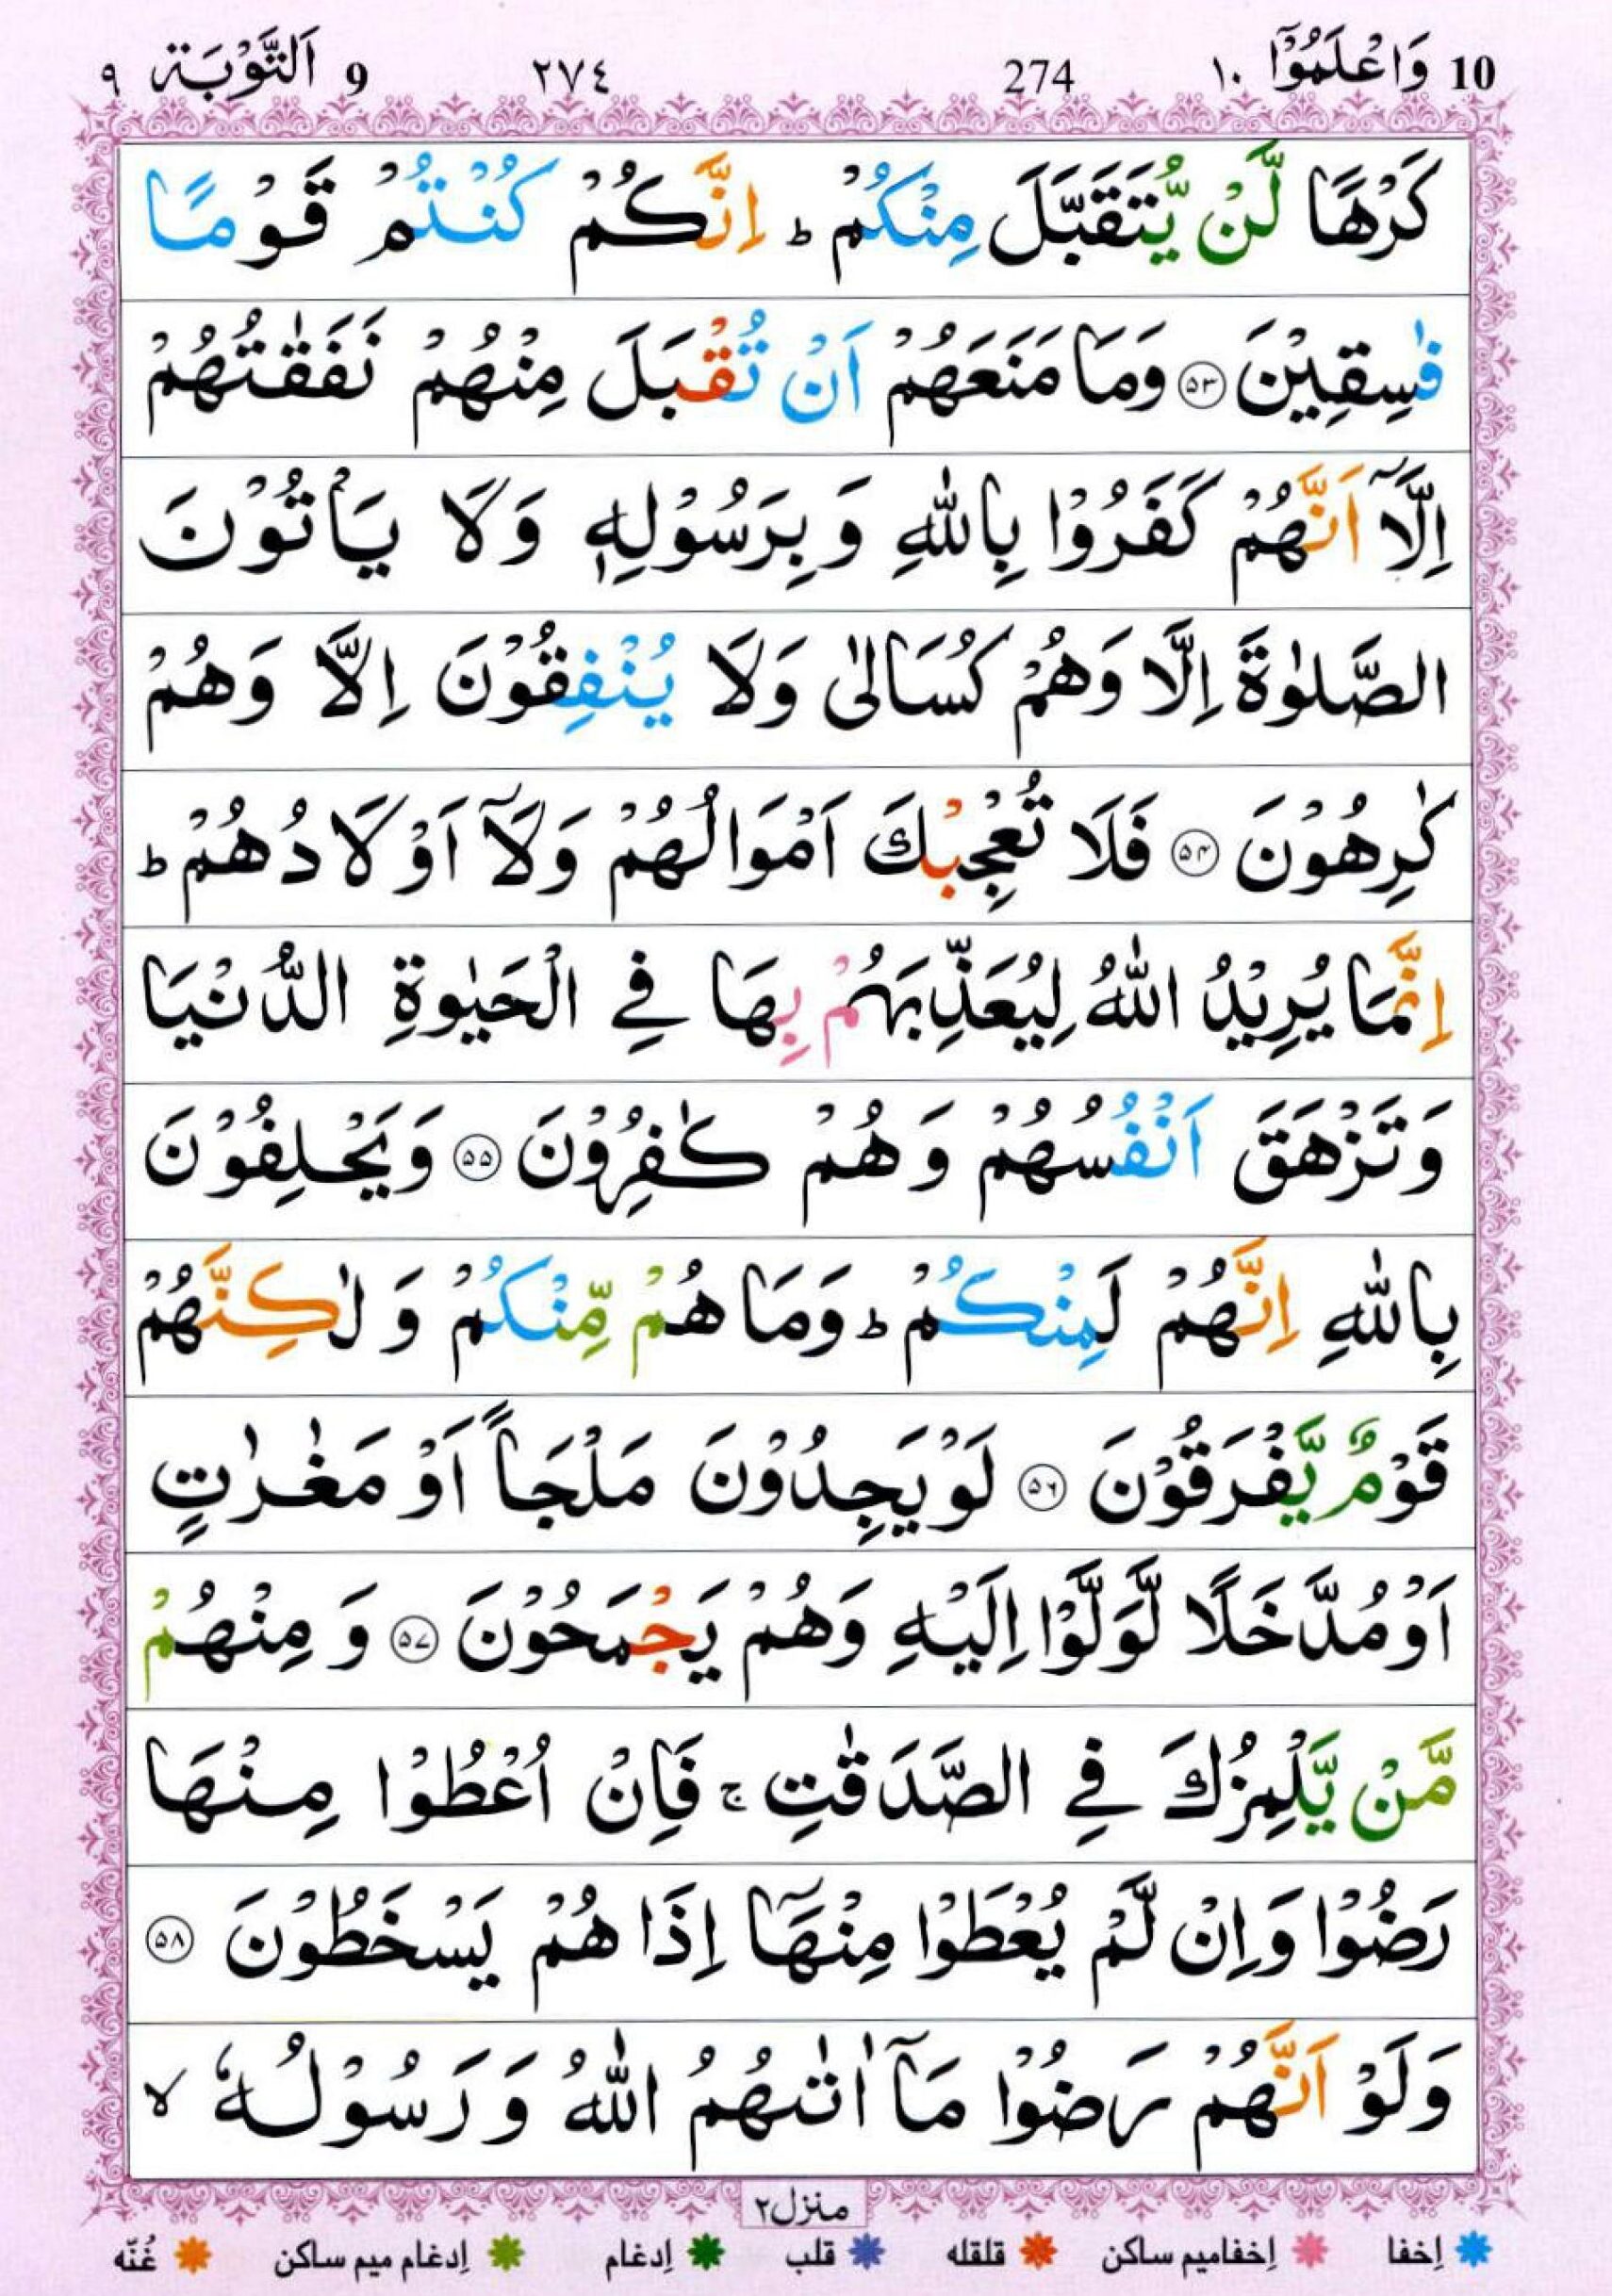 10 وَاعْلَمُوْۤا ١٠ 274 ٢٧٤ 9 اَلتَّوْبَة ٩
كَرْهًا لَّنْ يُّتَقَبَّلَ مِنْكُمْ ؕ اِنَّكُمْ كُنْتُمْ قَوْمًا
فٰسِقِيْنَ ﴿۵۳﴾ وَمَا مَنَعَهُمْ اَنْ تُقْبَلَ مِنْهُمْ نَفَقٰتُهُمْ
اِلَّاۤ اَنَّهُمْ كَفَرُوْا بِاللّٰهِ وَ بِرَسُوْلِهٖ وَلَا يَاْتُوْنَ
الصَّلٰوةَ اِلَّا وَهُمْ كُسَالٰى وَلَا يُنْفِقُوْنَ اِلَّا وَهُمْ
كٰرِهُوْنَ ﴿۵۴﴾ فَلَا تُعْجِبْكَ اَمْوَالُهُمْ وَلَاۤ اَوْلَادُهُمْ ؕ
اِنَّمَا يُرِيْدُ اللّٰهُ لِيُعَذِّبَهُمْ بِهَا فِي الْحَيٰوةِ الدُّنْيَا
وَتَزْهَقَ اَنْفُسُهُمْ وَهُمْ كٰفِرُوْنَ ﴿۵۵﴾ وَيَحْلِفُوْنَ
بِاللّٰهِ اِنَّهُمْ لَمِنْكُمْ ؕ وَمَا هُمْ مِّنْكُمْ وَ لٰكِنَّهُمْ
قَوْمٌ يَّفْرَقُوْنَ ﴿۵۶﴾ لَوْ يَجِدُوْنَ مَلْجَاً اَوْ مَغٰرٰتٍ
اَوْ مُدَّخَلًا لَّوَلَّوْا اِلَيْهِ وَهُمْ يَجْمَحُوْنَ ﴿۵۷﴾ وَ مِنْهُمْ
مَّنْ يَّلْمِزُكَ فِي الصَّدَقٰتِ ۚ فَاِنْ اُعْطُوْا مِنْهَا
رَضُوْا وَاِنْ لَّمْ يُعْطَوْا مِنْهَاۤ اِذَا هُمْ يَسْخَطُوْنَ ﴿۵۸﴾
وَلَوْ اَنَّهُمْ رَضُوْا مَاۤ اٰتٰىهُمُ اللّٰهُ وَ رَسُوْلُهٗ ۙ
منزل٢
اِخفا اِخفامیم ساکن قلقله قلب اِدغام اِدغام میم ساکن غُنّه